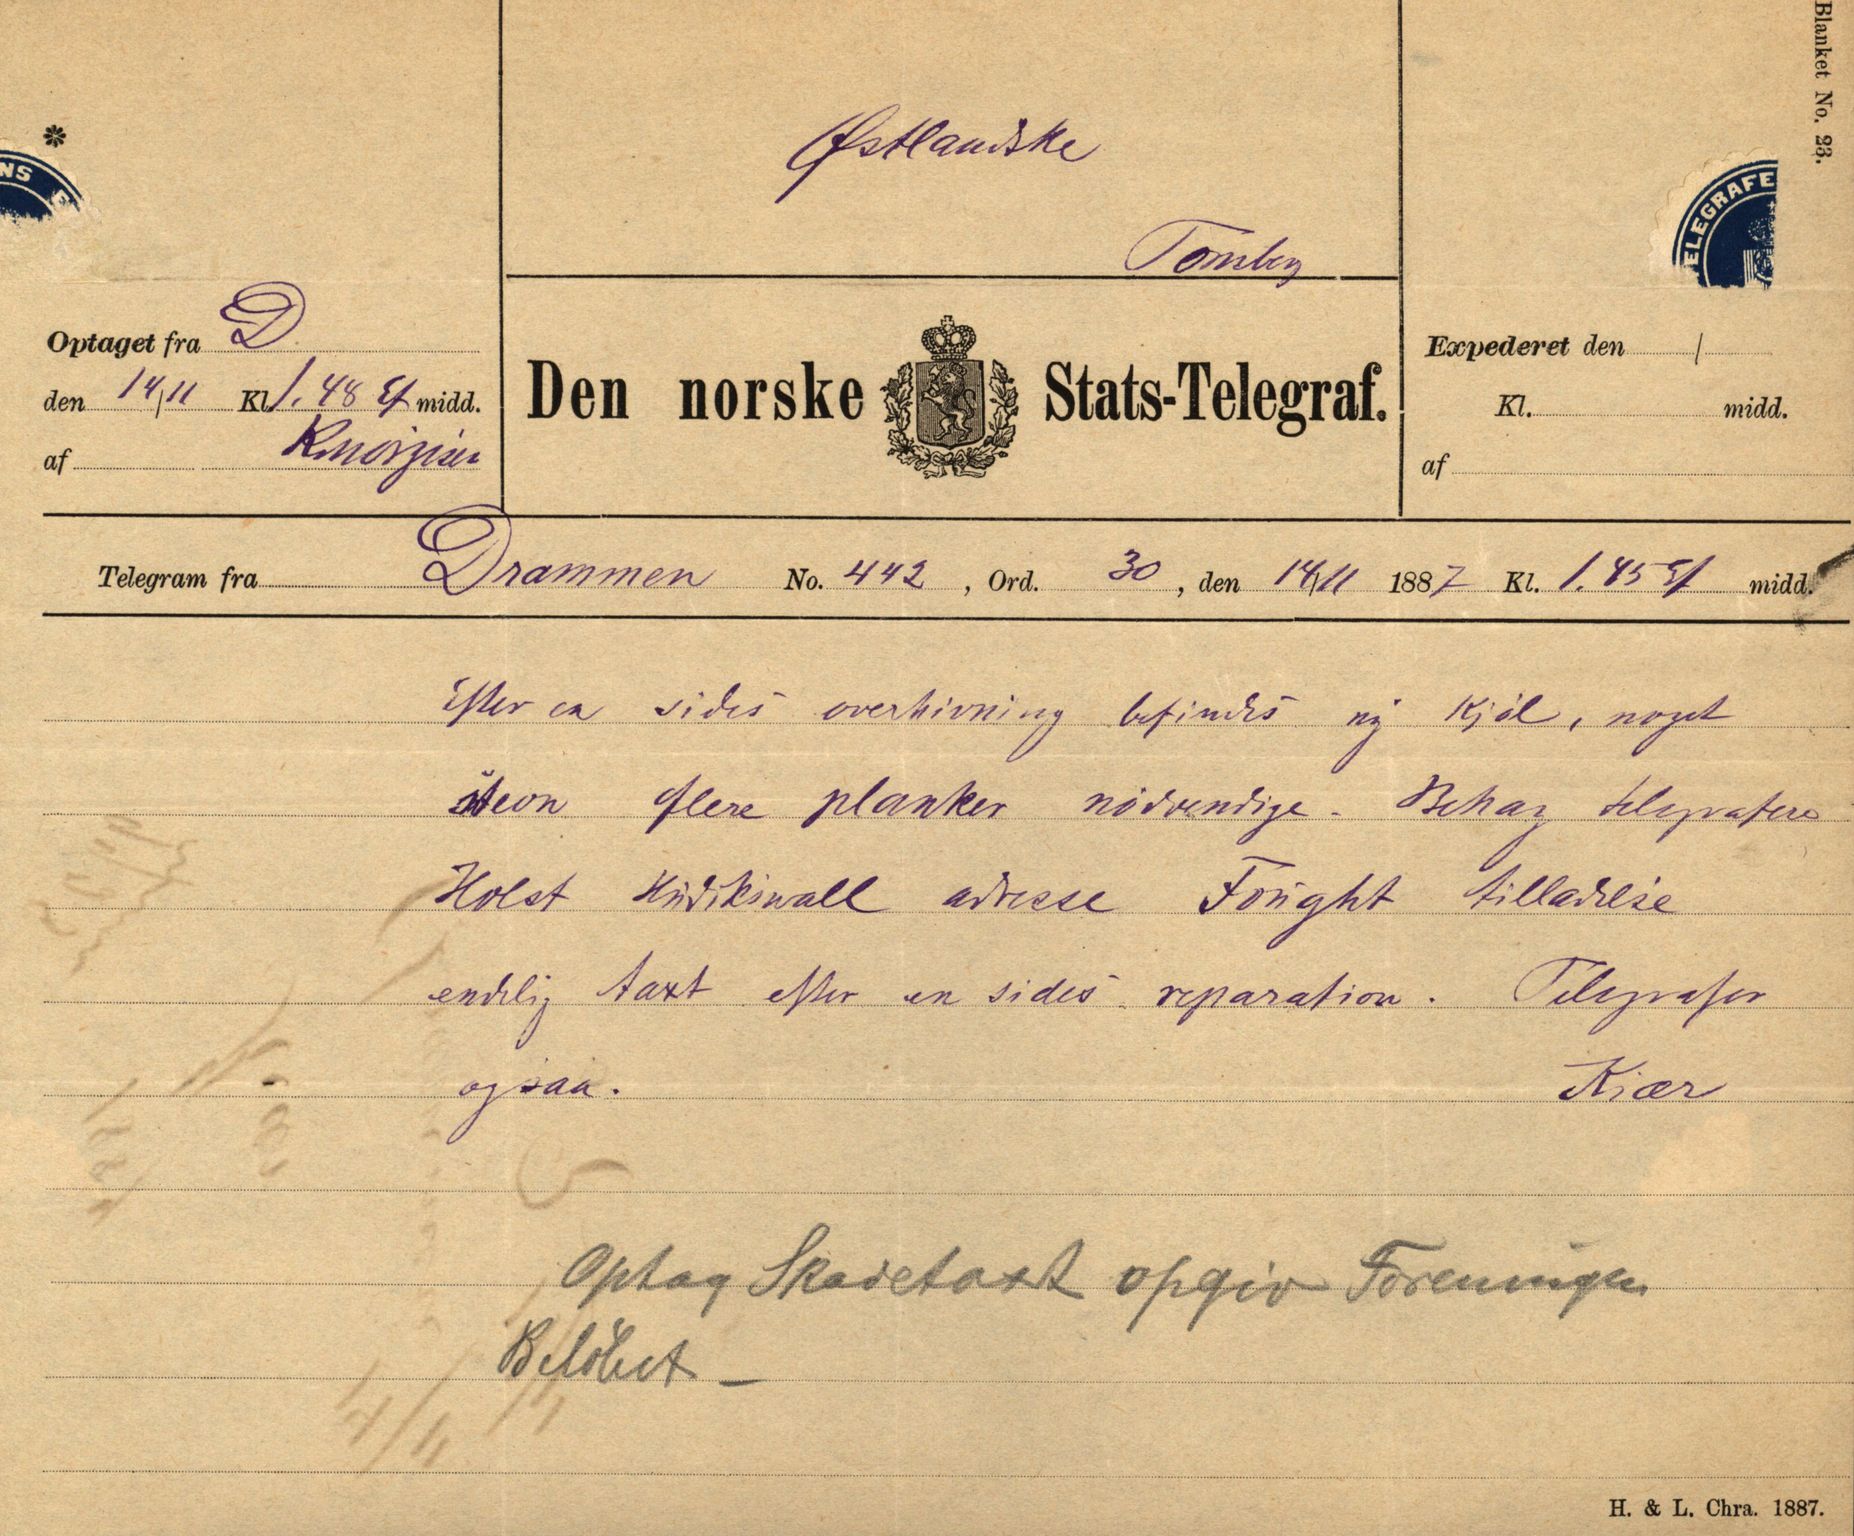 Blanket No. 23.
Østlandske
Tønsberg
NS
TELEGRAFE
Optaget fra D.
den 14/11 Kl. 1.48 Ef midd.
af
Den norske Stats-Telegraf.
Expederet den /
Kl. midd.
af
Telegram fra Drammen No. 442, Ord. 30, den 14/11 1887 Kl. 1.45 Ef midd.
Efter en sides overhivning befindes ny Kjøl, noget
flere planker nödvendige. Behag telegrafere
Holst Hudikswall adresse Fought tilladelse
endelig taxt efter en sides reparation. Telegrafer
ogsaa. Kiær
Optag Skadetaxt opgiv Foreningen
Belöbet —
H. & L. Chra. 1887.